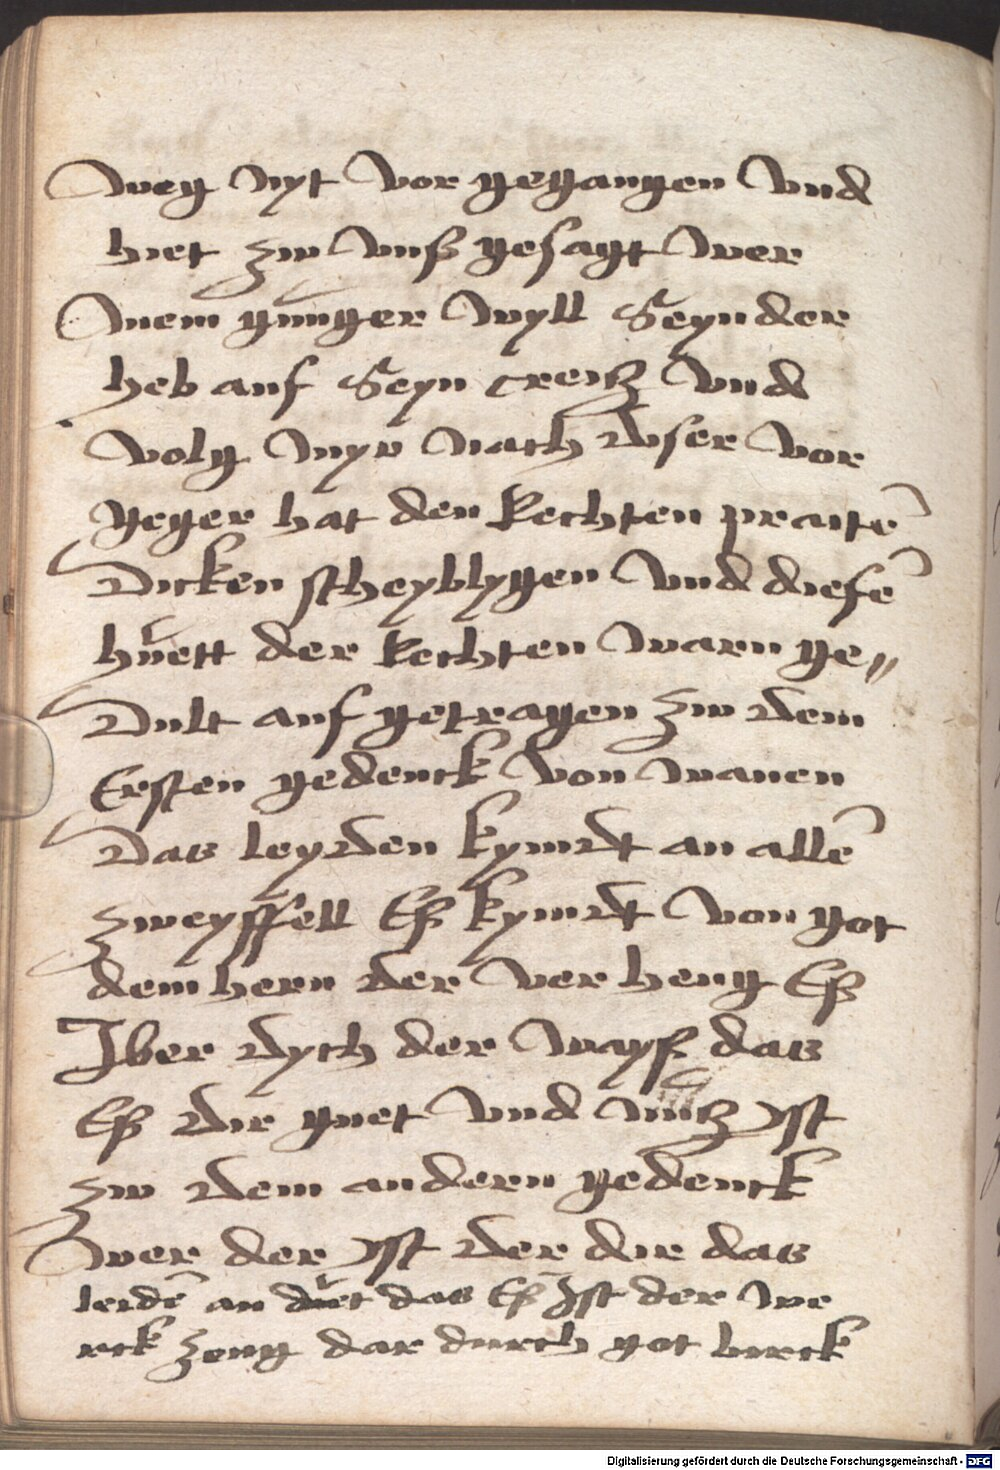 weg nyt vor gegangen vnd
hiet zw vnß gesagt wer
mein gunger wyll Seyn der
heb auf Seyn creitz vnd
volg myr nach vnser vor
geger hat den Rechten praitē
dicken scheyblygen vnd diefē
hüett der Rechten warn ge〃
dult auf getragen zw dem
Ersten gedenck von wanen
das leyden kymdt an allē
zweyffell Eß kymdt von got
dem hern der ver heng Eß
Iber dych der wayß das
Eß dir guet vnd nutz yst
zw dem andern gedenck
wer der yst der dir das
leidē an düet das Eß Ist der we
rck zeug dar durch got birck
Digitalisierung gefördert durch die Deutsche Forschungsgemeinschaft - DFG